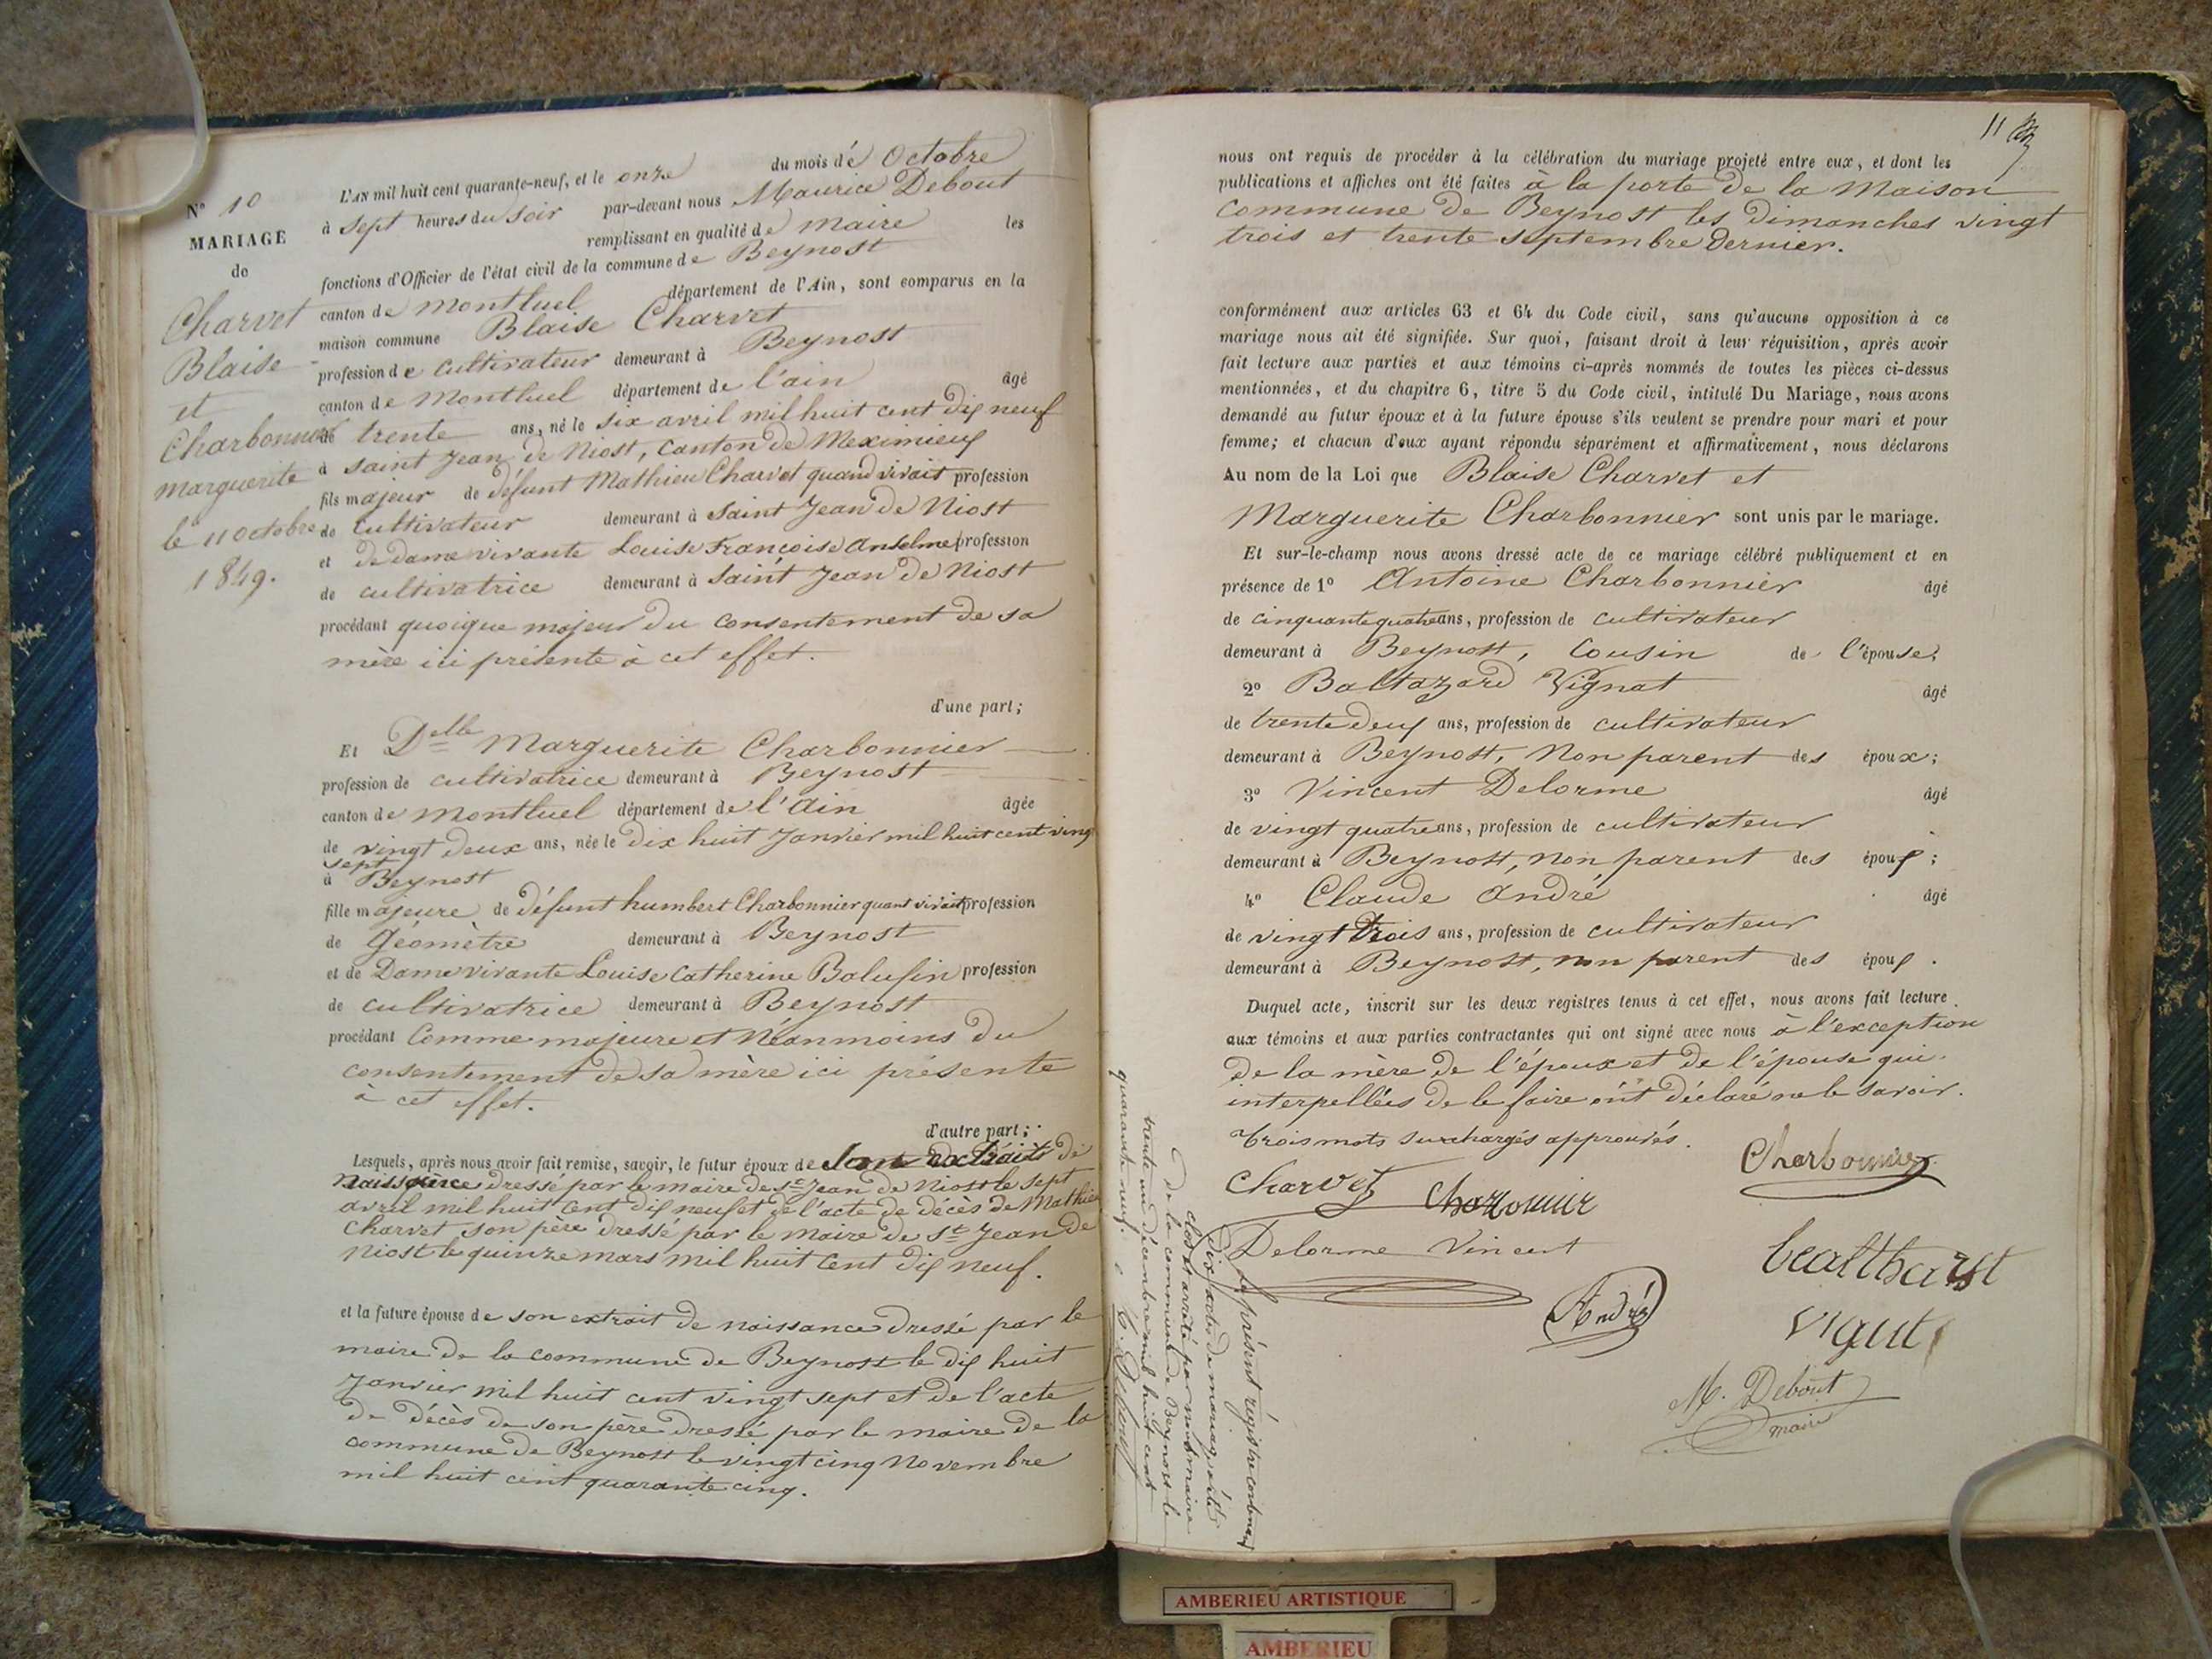 N° 10
MARIAGE
de
Charvet
Blaise
et
Charbonnier
marguerite
le 11 octobre
1849.
L'AN mil huit cent quarante-neuf, et le onze du mois d'é Octobre
à sept heures du soir par-devant nous Maurice Debout
remplissant en qualité de maire les
fonctions d'Officier de l'état civil de la commune de Beynost
canton de montluel département de l'Ain, sont comparus en la
maison commune Blaise Charvet
profession de cultivateur demeurant à Beynost
canton de Montluel département de l'ain âgé
de trente ans, né le six avril mil huit cent dix neuf
à saint Jean de Niost, Canton de Meximieux
fils majeur de défunt Mathieu Charvet quand vivait profession
de Cultivateur demeurant à Saint Jean de Niost
et de dame vivante Louise Françoise Anselme profession
de cultivatrice demeurant à Saint Jean de Niost
procédant quoique majeur du consentement de sa
mère ici présente à cet effet.
d'une part;
Et Delle Marguerite Charbonnier
profession de cultivatrice demeurant à Beynost
canton de montluel département de l'Ain âgée
de vingt deux ans, née le dix huit Janvier mil huit cent vingt
sept
à Beynost
fille majeure de défunt humbert Charbonnier quant vivait profession
de Géomètre demeurant à Beynost
et de Dame vivante Louise Catherine Balufin profession
de cultivatrice demeurant à Beynost
procédant Comme majeure et Néanmoins du
consentement de sa mère ici présente
à cet effet.
d'autre part;
Lesquels, après nous avoir fait remise, savoir, le futur époux de son extrait de
naissance dressé par le maire de St Jean de Niost le sept
avril mil huit cent dix neuf et de l'acte de décès de Mathieu
Charvet son père dressé par le maire de St Jean de
Niost le quinze mars mil huit cent dix neuf.
et la future épouse de son extrait de naissance dressé par le
maire de la commune de Beynost le dix huit
Janvier mil huit cent vingt sept et de l'acte
de décès de son père dressé par le maire de la
commune de Beynost le vingt cinq Novembre
mil huit cent quarante cinq.
11
nous ont requis de procéder à la célébration du mariage projeté entre eux, et dont les
publications et affiches ont été faites à la porte de la Maison
Commune de Beynost les dimanches vingt
trois et trente septembre dernier.
conformément aux articles 63 et 64 du Code civil, sans qu'aucune opposition à ce
mariage nous ait été signifiée. Sur quoi, faisant droit à leur réquisition, après avoir
fait lecture aux parties et aux témoins ci-après nommés de toutes les pièces ci-dessus
mentionnées, et du chapitre 6, titre 5 du Code civil, intitulé Du Mariage, nous avons
demandé au futur époux et à la future épouse s'ils veulent se prendre pour mari et pour
femme; et chacun d'eux ayant répondu séparément et affirmativement, nous déclarons
Au nom de la Loi que Blaise Charvet et
Marguerite Charbonnier sont unis par le mariage.
Et sur-le-champ nous avons dressé acte de ce mariage célébré publiquement et en
présence de 1° Antoine Charbonnier âgé
de cinquante quatre ans, profession de cultivateur
demeurant à Beynost, Cousin de l'épouse;
2° Baltazard Vignat âgé
de trente deux ans, profession de cultivateur
demeurant à Beynost, Non parent des époux;
3° Vincent Delorme âgé
de vingt quatre ans, profession de cultivateur
demeurant à Beynost, non parent des époux;
4° Claude André âgé
de vingt trois ans, profession de cultivateur
demeurant à Beynost, non parent des époux.
Duquel acte, inscrit sur les deux registres tenus à cet effet, nous avons fait lecture
aux témoins et aux parties contractantes qui ont signé avec nous à l'exception
de la mère de l'époux et de l'épouse qui
interpellées de le faire ont déclaré ne le savoir.
trois mots surchargés approuvés.
Charvet
Charbonnier
Delorme Vincent
André
M. Debout
maire
Le présent régistre contenant
dix actes de mariage a été
clos et arrêté par nous maire
de la commune de Beynost le
trente un décembre mil huit cent
quarante neuf.
M. Debout
AMBERIEU ARTISTIQUE
AMBERIEU